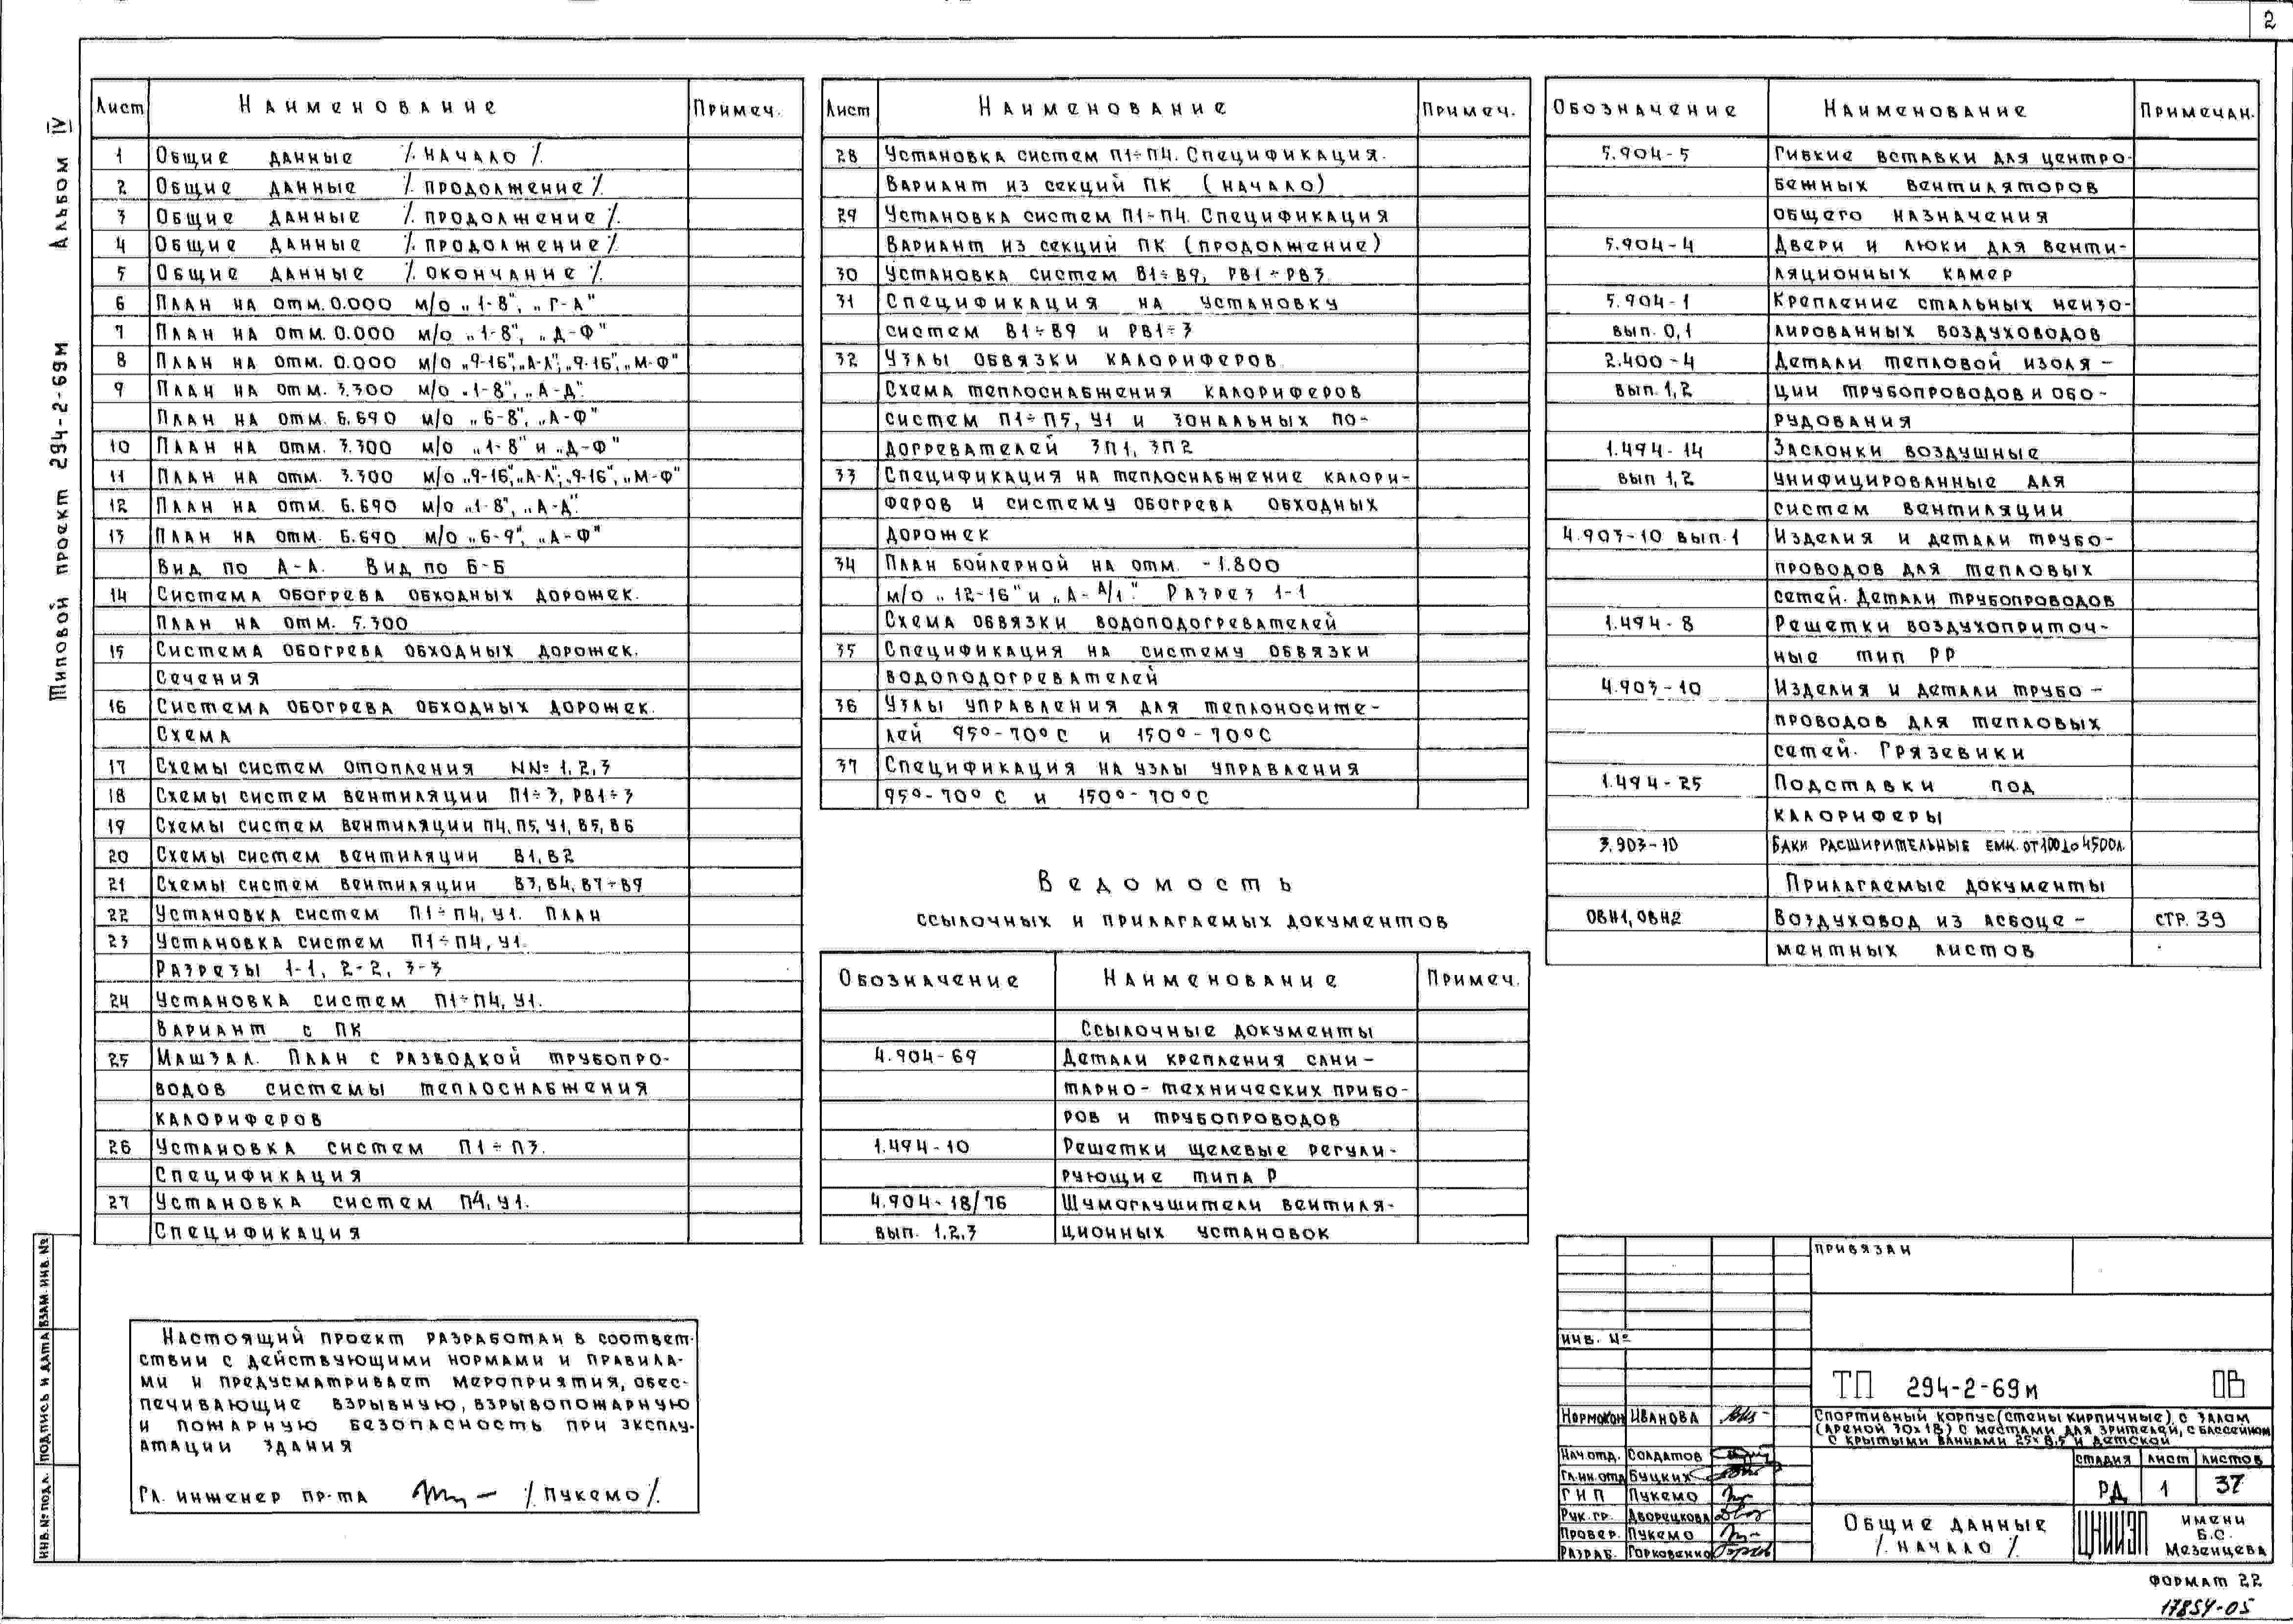 2
Альбом IV
Типовой проект 294-2-69м
Лист Наименование Примеч.
1 Общие данные /. начало /.
2 Общие данные /. продолжение /.
3 Общие данные /. продолжение /.
4 Общие данные /. продолжение /.
5 Общие данные /. окончание /.
6 План на отм. 0.000 м/о „1-8", „Г-А"
7 План на отм. 0.000 м/о „1-8", „Д-Ф"
8 План на отм. 0.000 м/о „9-16", „А-Л"; „9-16", „М-Ф"
9 План на отм. 3.300 м/о „1-8", „А-Д".
План на отм. 6.690 м/о „6-8", „А-Ф"
10 План на отм. 3.300 м/о „1-8" и „Д-Ф"
11 План на отм. 3.300 м/о „9-16", „А-Л"; „9-16", „М-Ф"
12 План на отм. 6.690 м/о „1-8", „А-Д".
13 План на отм. 6.690 м/о „6-9", „А-Ф"
Вид по А-А. Вид по Б-Б
14 Система обогрева обходных дорожек.
План на отм. 5.300
15 Система обогрева обходных дорожек.
Сечения
16 Система обогрева обходных дорожек.
Схема
17 Схемы систем отопления NN° 1, 2, 3
18 Схемы систем вентиляции П1÷3, РВ1÷3
19 Схемы систем вентиляции П4, П5, У1, В5, В6
20 Схемы систем вентиляции В1, В2
21 Схемы систем вентиляции В3, В4, В7÷В9
22 Установка систем П1÷П4, У1. План
23 Установка систем П1÷П4, У1.
Разрезы 1-1, 2-2, 3-3
24 Установка систем П1÷П4, У1.
Вариант с ПК
25 Машзал. План с разводкой трубопро-
водов системы теплоснабжения
калориферов
26 Установка систем П1÷П3.
Спецификация
27 Установка систем П4, У1.
Спецификация
Лист Наименование Примеч.
28 Установка систем П1÷П4. Спецификация.
Вариант из секций ПК (начало)
29 Установка систем П1÷П4. Спецификация
Вариант из секций ПК (продолжение)
30 Установка систем В1÷В9, РВ1÷РВ3
31 Спецификация на установку
систем В1÷В9 и РВ1÷3
32 Узлы обвязки калориферов
Схема теплоснабжения калориферов
систем П1÷П5, У1 и зональных по-
догревателей ЗП1, ЗП2
33 Спецификация на теплоснабжение калори-
феров и систему обогрева обходных
дорожек
34 План бойлерной на отм. -1.800
м/о „12-16" и „А-А/1". Разрез 1-1
Схема обвязки водоподогревателей
35 Спецификация на систему обвязки
водоподогревателей
36 Узлы управления для теплоносите-
лей 95°-70°С и 150°-70°С
37 Спецификация на узлы управления
95°-70°С и 150°-70°С
Ведомость
ссылочных и прилагаемых документов
Обозначение Наименование Примеч.
Ссылочные документы
4.904-69 Детали крепления сани-
тарно-технических прибо-
ров и трубопроводов
1.494-10 Решетки щелевые регули-
рующие типа Р
4.904-18/76 Шумоглушители вентиля-
вып. 1,2,3 ционных установок
Обозначение Наименование Примечан.
5.904-5 Гибкие вставки для центро-
бежных вентиляторов
общего назначения
5.904-4 Двери и люки для венти-
ляционных камер
5.904-1 Крепление стальных неизо-
вып. 0,1 лированных воздуховодов
2.400-4 Детали тепловой изоля-
вып. 1,2 ции трубопроводов и обо-
рудования
1.494-14 Заслонки воздушные
вып 1,2 унифицированные для
систем вентиляции
4.903-10 вып.1 Изделия и детали трубо-
проводов для тепловых
сетей. Детали трубопроводов
1.494-8 Решетки воздухоприточ-
ные тип РР
4.903-10 Изделия и детали трубо-
проводов для тепловых
сетей. Грязевики
1.494-25 Подставки под
калориферы
3.903-10 Баки расширительные емк. от 100 до 4500л.
Прилагаемые документы
ОВН1, ОВН2 Воздуховод из асбоце- стр. 39
ментных листов
Настоящий проект разработан в соответ-
ствии с действующими нормами и правила-
ми и предусматривает мероприятия, обес-
печивающие взрывную, взрывопожарную
и пожарную безопасность при эксплу-
атации здания
Гл. инженер пр-та /. Пукемо /.
Взам. инв. №
Подпись и дата
Инв. № подл.
Привязан
Инв. №
ТП 294-2-69м ОВ
Нормокон Иванова
Нач. отд. Солдатов
Гл. ин. отд Буцких
ГИП Пукемо
Рук. гр. Дворецкова
Провер. Пукемо
Разраб. Горковенко
Спортивный корпус (стены кирпичные) с залом
(ареной 30×18) с местами для зрителей, с бассейном
с крытыми ваннами 25×8,5 и детской
Стадия Лист Листов
РД 1 37
Общие данные
/. начало /.
ЦНИИЭП
имени
Б.С.
Мезенцева
Формат 22
17854-05